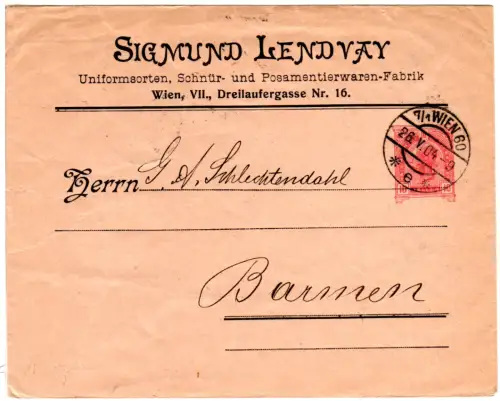 SIGMUND LENDVAY
Uniformsorten, Schnür- und Posamentierwaren-Fabrik
Wien, VII., Dreilaufergasse Nr. 16.
7/1 WIEN 60
26.V.04
* e
Herrn G. A. Schlechtendahl
Barmen